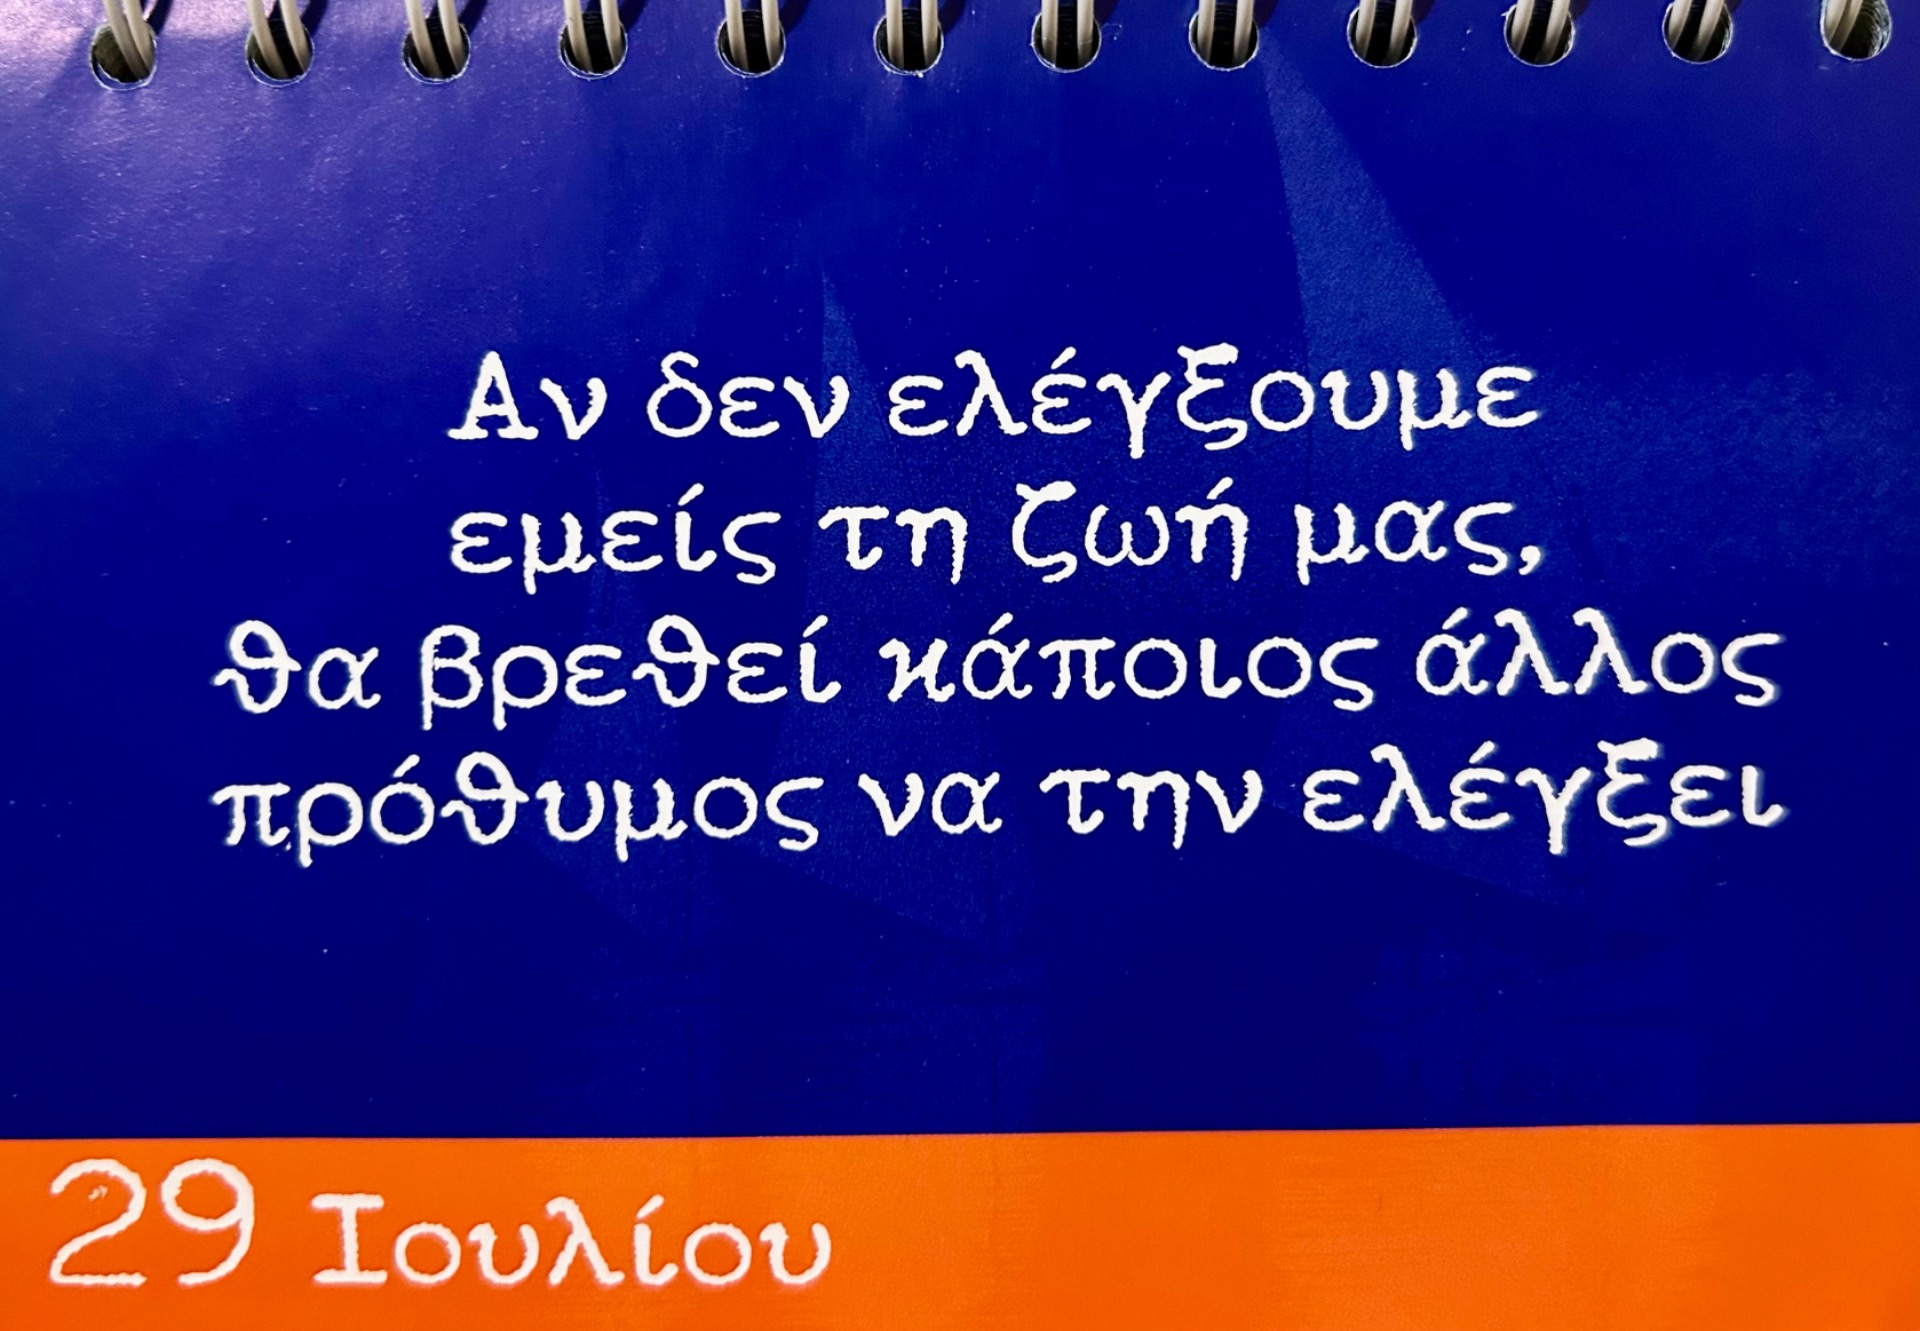 Αν δεν ελέγξουμε
εμείς τη ζωή μας,
θα βρεθεί κάποιος άλλος
πρόθυμος να την ελέγξει
29 Ιουλίου